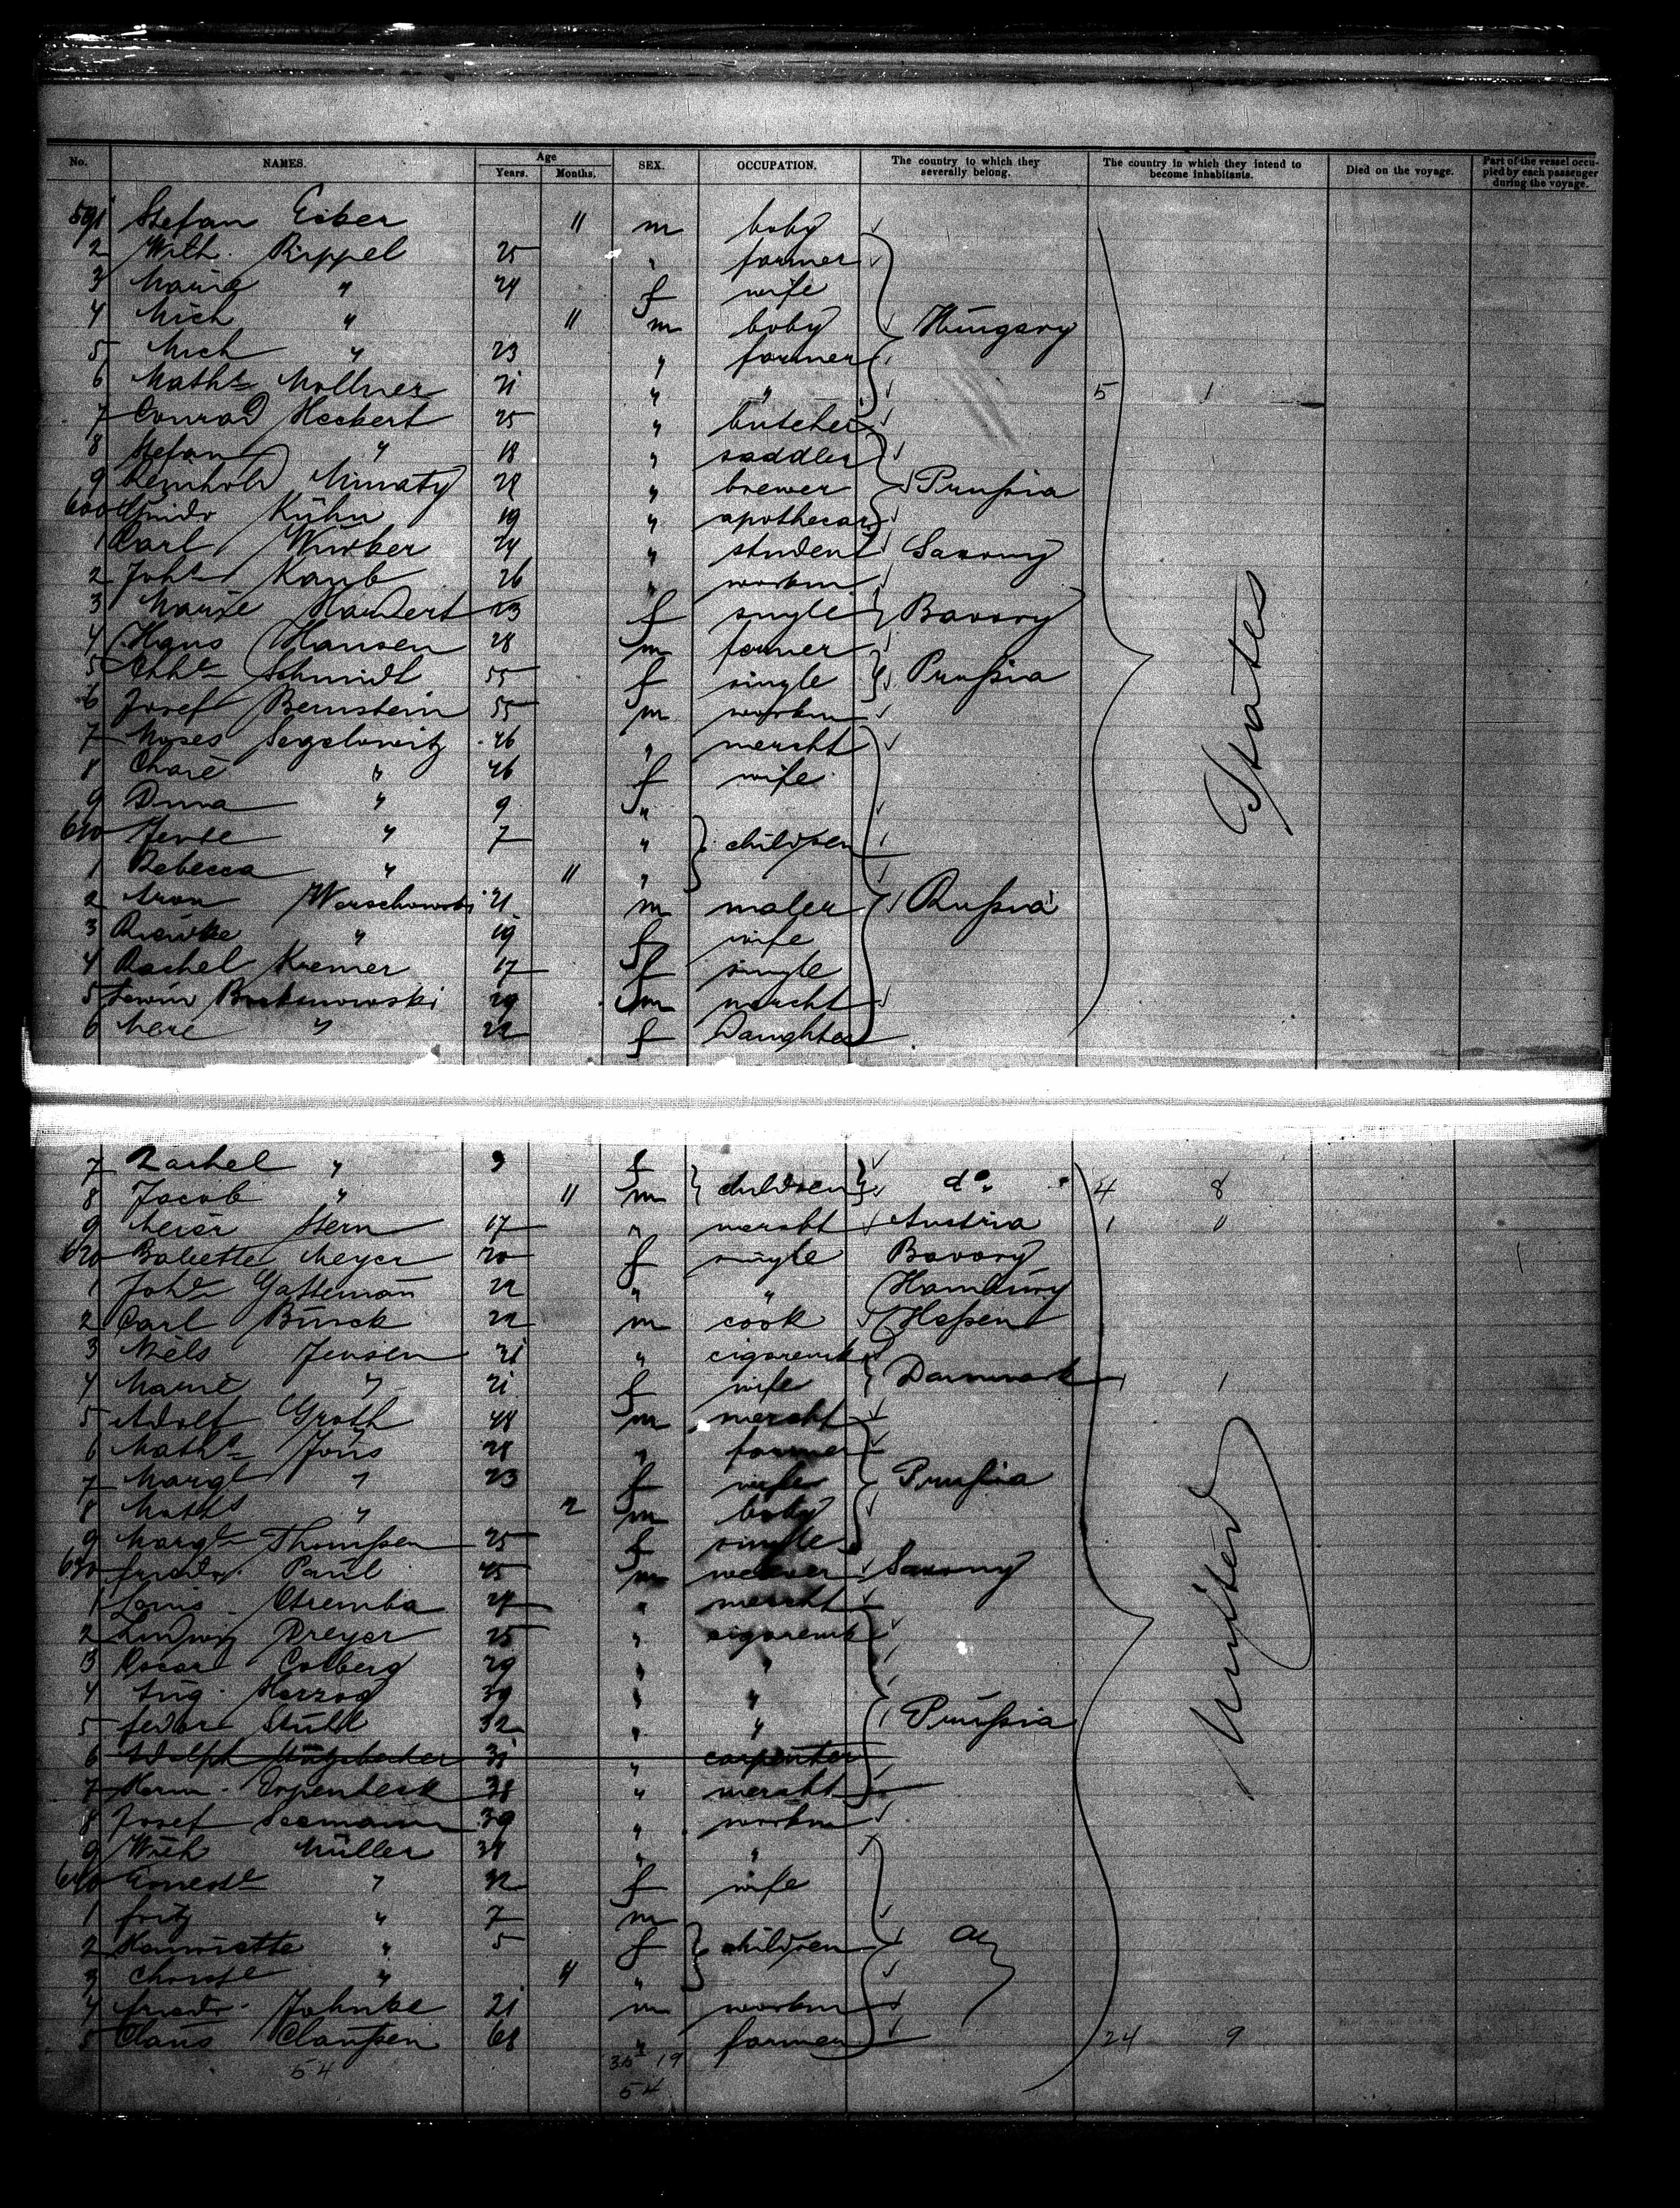 No. NAMES. Age Years. Months. SEX. OCCUPATION. The country to which they severally belong. The country in which they intend to become inhabitants. Died on the voyage. Part of the vessel occupied by each passenger during the voyage.
591 Stefan Eiber 11 m baby
2 Wilh. Rippel 25 " farmer
3 Marie " 24 f wife
4 Mich " 11 m baby Hungary
5 Mich " 23 " farmer
6 Maths Mollner 21 " " 5 1
7 Conrad Heckert 25 " butcher
8 Stefan " 18 " saddler
9 Reinhold 28 " brewer Prußia
600 Kühn 19 " apothecar
1 Carl 24 " student Saxony
2 Johs Kaub 26 " workm
3 Marie 23 f single Bavary
4 Hans Hansen 28 m farmer
5 Cathe Schmidt 55 f single Prußia
6 Josef Bernstein 55 m workm
7 Moses Segelowitz 46 " mercht
8 " 46 f wife
9 " 9 "
610 " 7 " children
1 Rebecca " 11 "
2 Aron Warschowski 21 m maler Rußia
3 Riewke " 19 f wife
4 Rachel Kremer 17 f single
5 29 m mercht
6 Mere " 22 f Daughter
States
7 Rachel " 9 f
8 Jacob " 11 m children do 4 8
9 Meier Stern 17 " mercht Austria 1 0
620 Babette Meyer 20 f single Bavary
1 Johe 22 " " Hamburg
2 Carl Burck 22 m cook Heßen
3 Niels Jensen 31 " cigaremk
4 Marie " 21 f wife Danmark 1 1
5 Adolf Groth 48 m mercht
6 Mathe Jöns 28 " farmer
7 Margt " 23 f wife Prußia
8 Maths " 2 m baby
9 Margt Thomßen 25 f single
630 friedr. Paul 45 m weaver Saxony
1 Louis Otremba 27 " mercht
2 Ludwig Dreyer 25 " cigaremk
3 Oscar Colberg 29 " "
4 Aug. Herzog 39 " "
5 fedor Stuhl 32 " " Prußia
6 Adolph 31 " carpenter
7 Herm. 38 " mercht
8 Josef Seemann 39 " workm
9 Wilh Müller 34 " "
640 " 32 f wife
1 fritz " 7 m
2 Henriette " 5 f children
3 " 4 "
4 friedr. Jahnke 21 m workm
5 Claus Claußen 68 " farmer 24 9
United
54 35 19
54